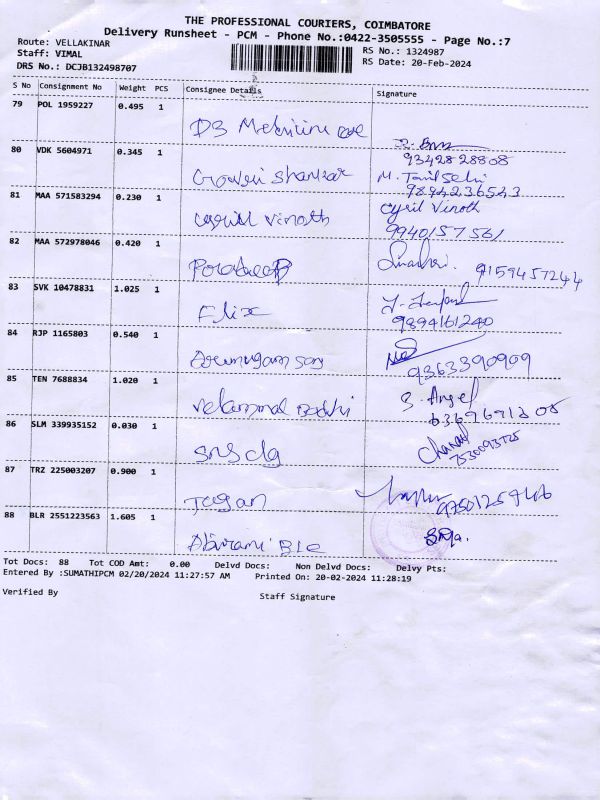 THE PROFESSIONAL COURIERS, COIMBATORE
Delivery Runsheet - PCM - Phone No.:0422-3505555 - Page No.:7
Route: VELLAKINAR
Staff: VIMAL
DRS No.: DCJB132498707
RS No.: 1324987
RS Date: 20-Feb-2024
S No Consignment No Weight PCS Consignee Details Signature
79 POL 1959227 0.495 1
80 VDK 5604971 0.345 1
9342828808
Gowri Shankar M. Tamilselvi
81 MAA 571583294 0.230 1
Cyril Vinoth Cyril Vinoth
9940157561
82 MAA 572978046 0.420 1
9159457244
83 SVK 10478831 1.025 1
9894161240
84 RJP 1165803 0.540 1
9363390909
85 TEN 7688834 1.020 1
S. Angel
86 SLM 339935152 0.030 1
SNS clg
87 TRZ 225003207 0.900 1
Jagan
88 BLR 2551223563 1.605 1
Abirami
Tot Docs: 88 Tot COD Amt: 0.00 Delvd Docs: Non Delvd Docs: Delvy Pts:
Entered By :SUMATHIPCM 02/20/2024 11:27:57 AM Printed On: 20-02-2024 11:28:19
Verified By
Staff Signature